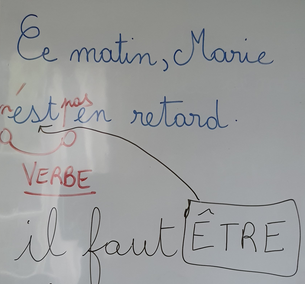 Ce matin, Marie
n'est pas en retard.
VERBE
il faut ÊTRE